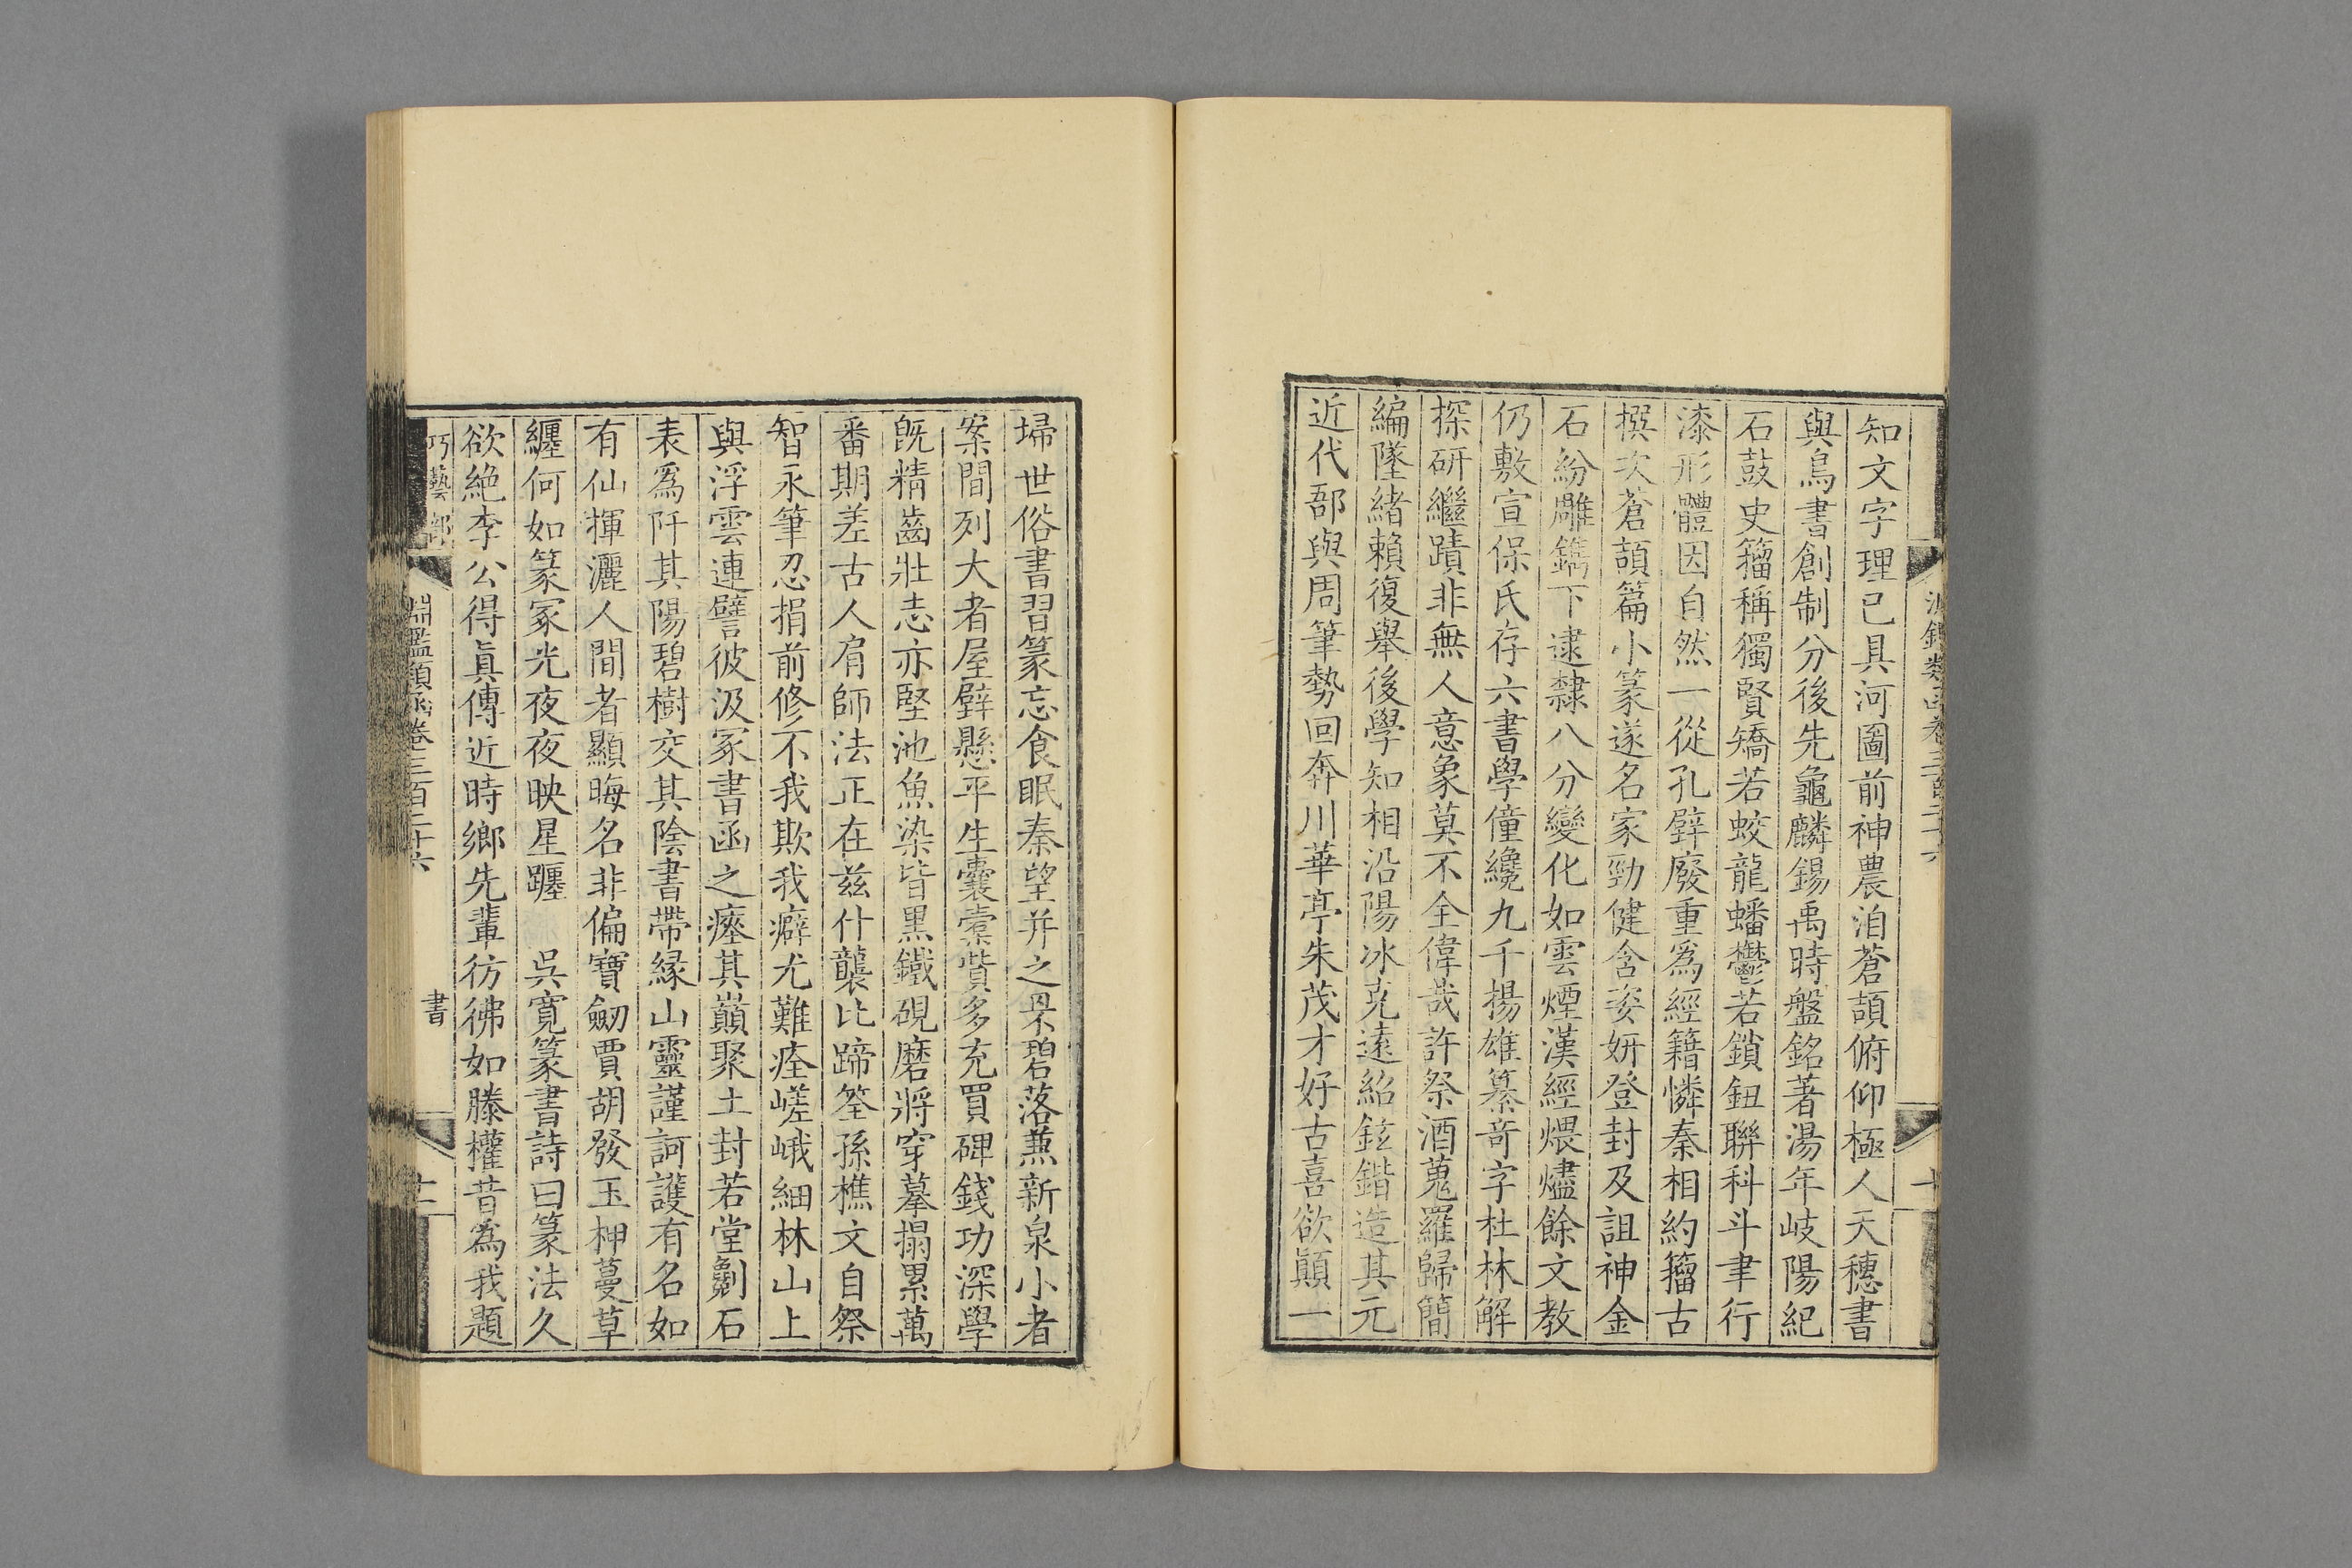 知文字理已具河圖前神農洎蒼頡俯仰極人天穗書
與鳥書創制分後先龜麟錫禹時盤銘著湯年岐陽紀
石鼓史籀稱獨賢矯若蛟龍蟠鬱若鎖鈕聯科斗聿行
漆形體因自然一從孔壁廢重為經籍憐秦相約籀古
撰次蒼頡篇小篆遂名家勁健含姿妍登封及詛神金
石紛雕鐫下逮隸八分變化如雲煙漢經煨燼餘文教
仍敷宣保氏存六書學僮纔九千揚雄纂奇字杜林解
探研繼蹟非無人意象莫不全偉哉許祭酒蒐羅歸簡
編墜緒賴復舉後學知相沿陽冰克遠紹鉉鍇造其元
近代郚與周筆勢回奔川華亭朱茂才好古喜欲顛一
埽世俗書習篆忘食眠秦望并之罘碧落蕉新泉小者
案間列大者屋壁懸平生囊橐貲多充買碑錢功深學
既精齒壯志亦堅池魚染皆黑鐵硯磨將穿摹搨累萬
番期差古人肩師法正在茲什襲比蹄筌孫樵文自祭
智永筆忍捐前修不我欺我癖尤難痊嵯峨細林山上
與浮雲連譬彼汲冢書函之瘞其巔聚土封若堂劖石
表為阡其陽碧樹交其陰書帶緣山靈謹訶護有名如
有仙揮灑人間者顯晦名非偏寶劒賈胡發玉柙蔓草
纏何如篆冢光夜夜映星躔 吳寬篆書詩曰篆法久
欲絕李公得眞傳近時鄉先輩彷彿如滕權昔為我題
巧藝部 淵鑑類函卷三百二十六 書